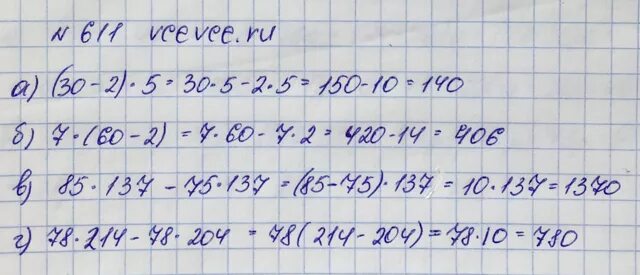 N 611 vcevce.ru
а) (30-2)·5 = 30·5-2·5 = 150-10 = 140
б) 7·(60-2) = 7·60-7·2 = 420-14 = 406
в) 85·137-75·137 = (85-75)·137 = 10·137 = 1370
г) 78·214-78·204 = 78(214-204) = 78·10 = 780